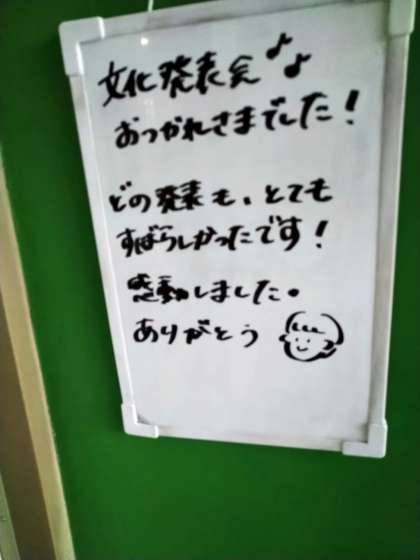 文化発表会♪♪
おつかれさまでした!
どの発表も、とても
すばらしかったです!
感動しました。
ありがとう